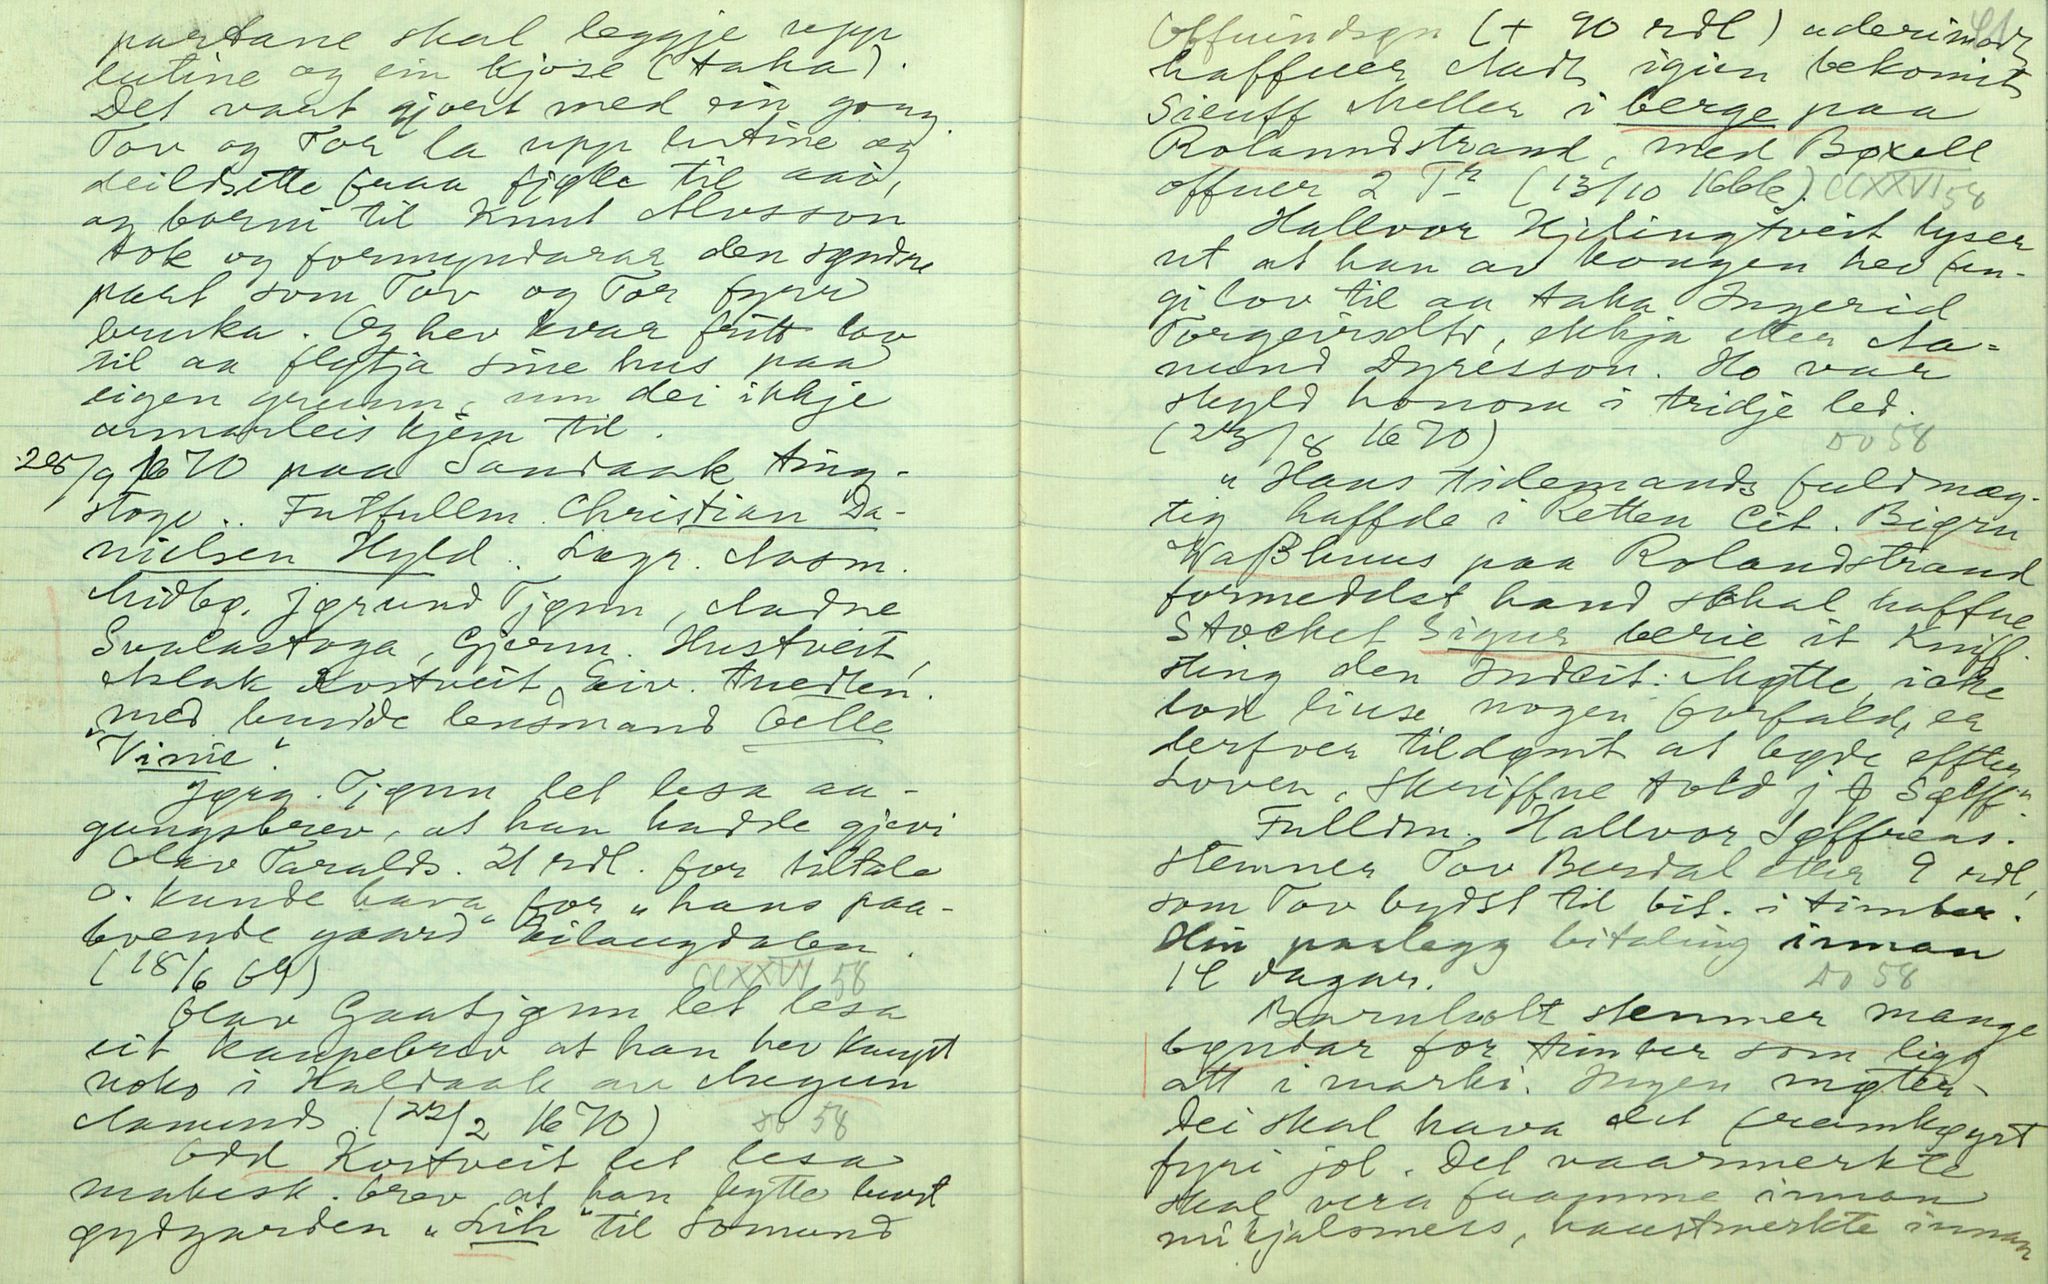 partane skal leggje upp
lutine og ein kjose (taka).
Det vart gjort med ein gong.
Tov og Tor la upp lutine og
deildsette fraa fjølle til aai,
og borni til Knut Alvsson
tok og formyndarar den syndre
part som Tov og Tor fyrr
bruka. Og hev kvar fritt lov
til aa flytja sine hus paa
eigen grunn, um dei ikkje
annarleis kjem til.
28/9 1670 paa Sandaak ting-
stoge.. Futfullm. Christian Da-
nielsen Hyld. Lagr. Aasm.
Midbø, Jørund Tjønn, Aadne
Svalastoga, Gjerm. Hustveit,
Aslak Kostveit, Eiv. Tuedten.
med bunde lensmand Celle
"Vinie".
Jørg. Tjønn let lesa aa-
gangsbrev, at han hadde gjevi
Olav Taralds. 21 rdl. for tiltale
O. kunde hava for "hans paa-
boende gaard" Eilaugdalen.
(15/6 69) CCXXVI 58
Olav Gaatjønn let lesa
eit kaupebrev at han hev kaupt
noko i Haldaak av Augun
Aamunds. (22/2 1670) Do 58
Odd Kostveit let lesa
makesk. brev at han bytte burt
øydgarden "Lih" til Somund
41
Offuindsøn (+ 90 rdl) aderimodt
haffuer Aadt igien bekomit
Sieuff Meller i berge paa
Rolanndstrand, med Bøxell
offuer 2 Tr (13/10 1666). CCXXVI 58
Hallvor Kjilingtveit lyser
ut at han av kongen hev fen-
gi lov til aa taka Ingerid
Torgeirsdtr, ekkja etter Aa-
mund Dyresson. Ho var
skyld honom i tridje led.
(23/8 1670) Do 58
"Hans tidemands fuldmæg-
tig haffde i Retten Cit. Biørn
Waßhuus paa Rolandstrand
formedelst hand skhal haffue
Stocket Sigur berie it Kniff
sting den Indcit: Møtte icke
lod liuse nogen forfald, er
derfver tildømt at bøde effter
Loven, skriffue told j ƒ Sølff"
Fulldm. Hallvor Søffrens.
stemner Tov Berdal etter 9 rdl,
som Tov bydst til bit. i timber.
Hin paalegg bitaling innan
14 dagar. Do 58
Barnholt stemner mange
bøndar for timber som ligg
att i marki. Ingen møter-
Dei skal hava det framkøyrt
fyri jol. Det vaarmerkte
skal vera framme innan
mikjalsmess, haustmerkte innan